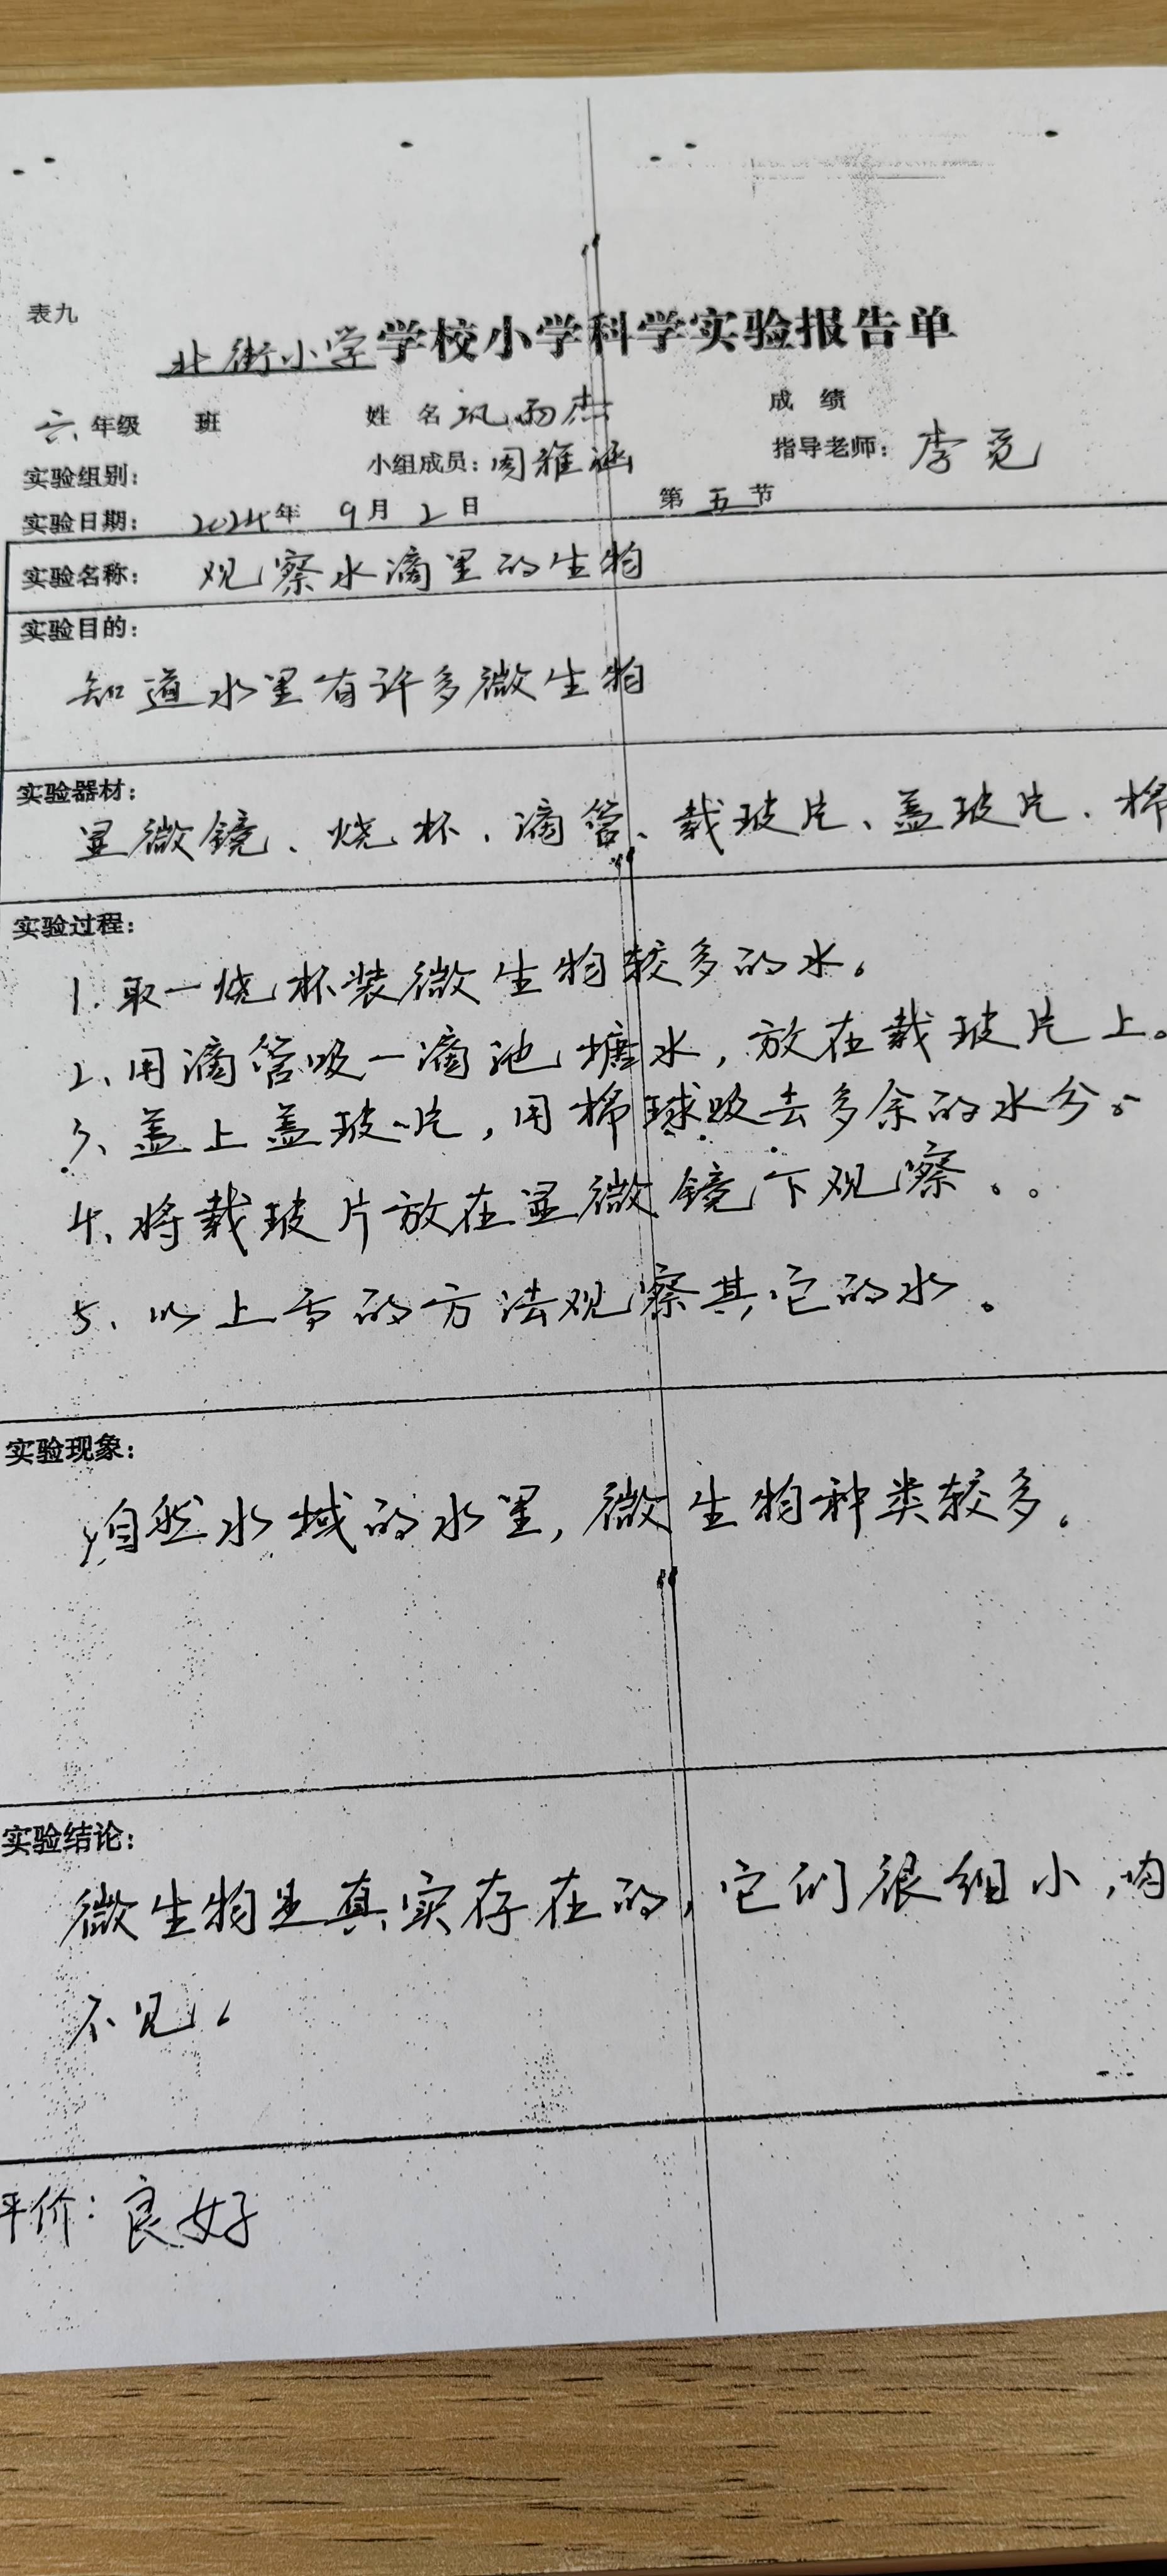 表九
北街小学学校小学科学实验报告单
六年级 班 姓 名 巩雨杰 成 绩
实验组别： 小组成员：周雅涵 指导老师：李
实验日期： 2024年 9月 2日 第 五 节
实验名称： 观察水滴里的生物
实验目的：
知道水里有许多微生物
实验器材：
显微镜、烧杯、滴管、载玻片、盖玻片、棉
实验过程：
1.取一烧杯装微生物较多的水。
2、用滴管吸一滴池塘水，放在载玻片上。
3、盖上盖玻片，用棉球吸去多余的水分。
4、将载玻片放在显微镜下观察。
5、以上面的方法观察其它的水。
实验现象：
自然水域的水里，微生物种类较多。
实验结论：
微生物是真实存在的，它们很细小，肉
不见。
评价：良好